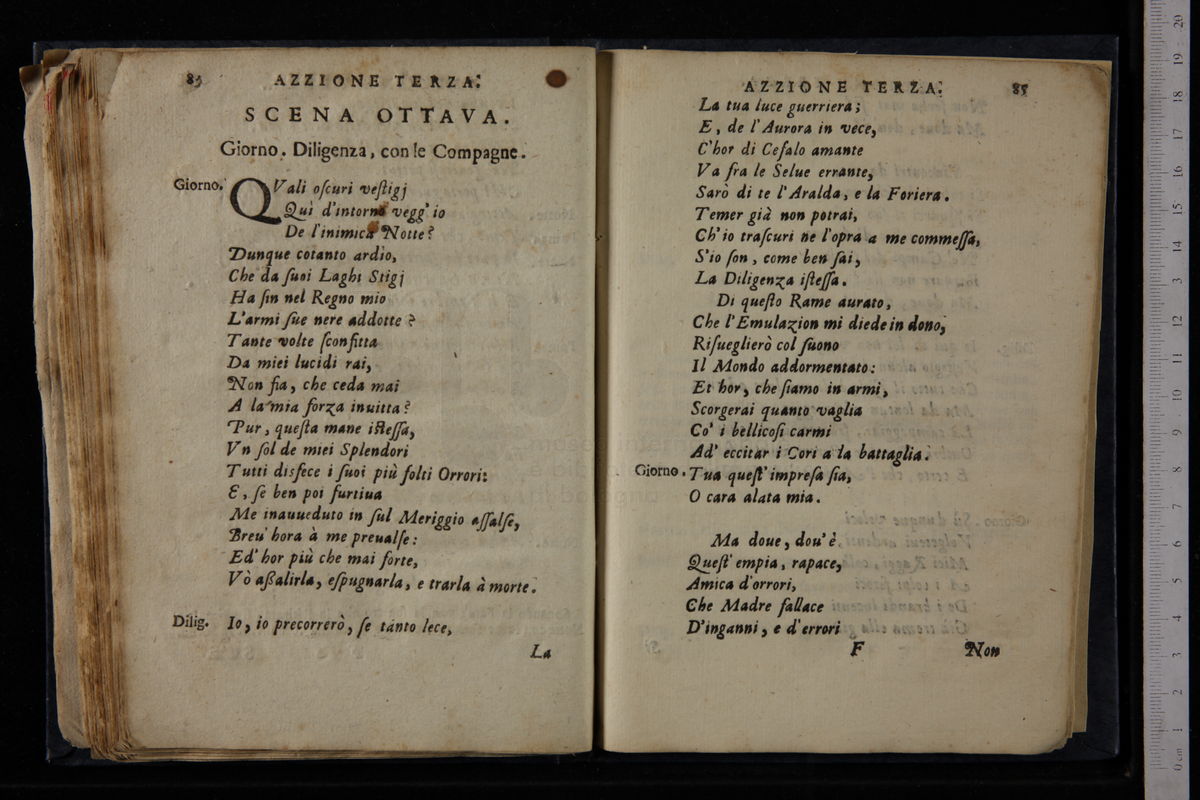 85 AZZIONE TERZA.
SCENA OTTAVA.
Giorno. Diligenza, con le Compagne.
Giorno. QVali oſcuri veſtigj
Quì d'intorno vegg' io
De l'inimica Notte?
Dunque cotanto ardìo,
Che da ſuoi Laghi Stigj
Ha ſin nel Regno mio
L'armi ſue nere addotte?
Tante volte ſconfitta
Da miei lucidi rai,
Non fia, che ceda mai
A la mia forza inuitta?
Pur, queſta mane iſteſſa,
Vn ſol de miei Splendori
Tutti disfece i ſuoi più folti Orrori:
E, ſe ben poi furtiua
Me inauueduto in ſul Meriggio aſſalſe,
Breu' hora à me preualſe:
Ed' hor più che mai forte,
Vò aſſalirla, eſpugnarla, e trarla à morte.
Dilig. Io, io precorrerò, ſe tanto lece,
La
AZZIONE TERZA. 85
La tua luce guerriera;
E, de l'Aurora in vece,
C'hor di Cefalo amante
Va fra le Selue errante,
Sarò di te l'Aralda, e la Foriera.
Temer già non potrai,
Ch'io traſcuri ne l'opra a me commeſſa,
S'io ſon, come ben ſai,
La Diligenza iſteſſa.
Di queſto Rame aurato,
Che l'Emulazion mi diede in dono,
Riſueglierò col ſuono
Il Mondo addormentato:
Et hor, che ſiamo in armi,
Scorgerai quanto vaglia
Co' i bellicoſi carmi
Ad' eccitar i Cori a la battaglia.
Giorno. Tua queſt' impreſa ſia,
O cara alata mia.
Ma doue, dou' è
Queſt' empia, rapace,
Amica d'orrori,
Che Madre fallace
D'inganni, e d'errori
F Non